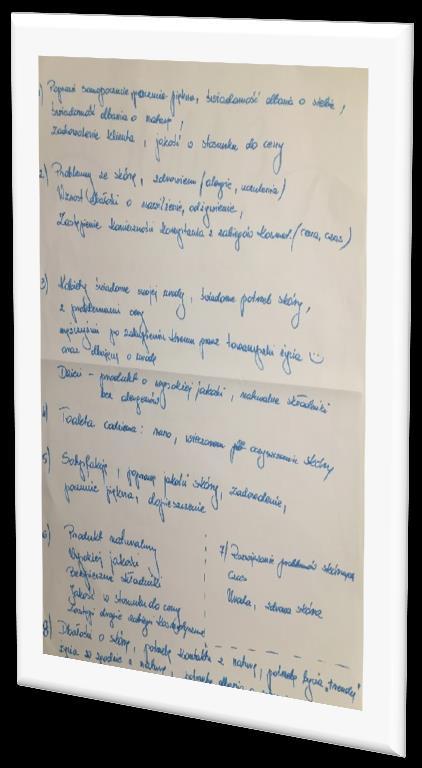 1) Poprawi samopoczucie, poczucie piękna, świadomość dbania o siebie,
świadomość dbania o naturę,
zadowolenie klienta, jakość w stosunku do ceny
2) Problemy ze skórą, zdrowiem (alergie, uczulenia)
dbałości o nawilżenie, odżywienie,
Zastąpienie konieczności korzystania z zabiegów kosmet. (cena, czas)
3) Kobiety świadome swojej urody, świadome potrzeb skóry,
z problemami cery
mężczyźni po zakupieniu kremu przez towarzyszki życia
oraz dbający o urodę
Dzieci - produkt o wysokiej jakości, naturalne składniki
bez alergenów
4) Toaleta codzienna: rano, wieczorem po oczyszczeniu skóry
5) Satysfakcję, poprawę jakości skóry, zadowolenie,
poczucie piękna, dopieszczenie
6) Produkt naturalny
Wysokiej jakości
Bezpieczne składniki
Jakość w stosunku do ceny
Zastąpi drogie zabiegi kosmetyczne
7/ Rozwiązanie problemów skórnych
Cena
Uroda, zdrowa skóra
8) Dbałości o skórę, potrzebę kontaktu z naturą, potrzebę bycia "trendy"
życia w zgodzie z naturą, potrzebę dbania o